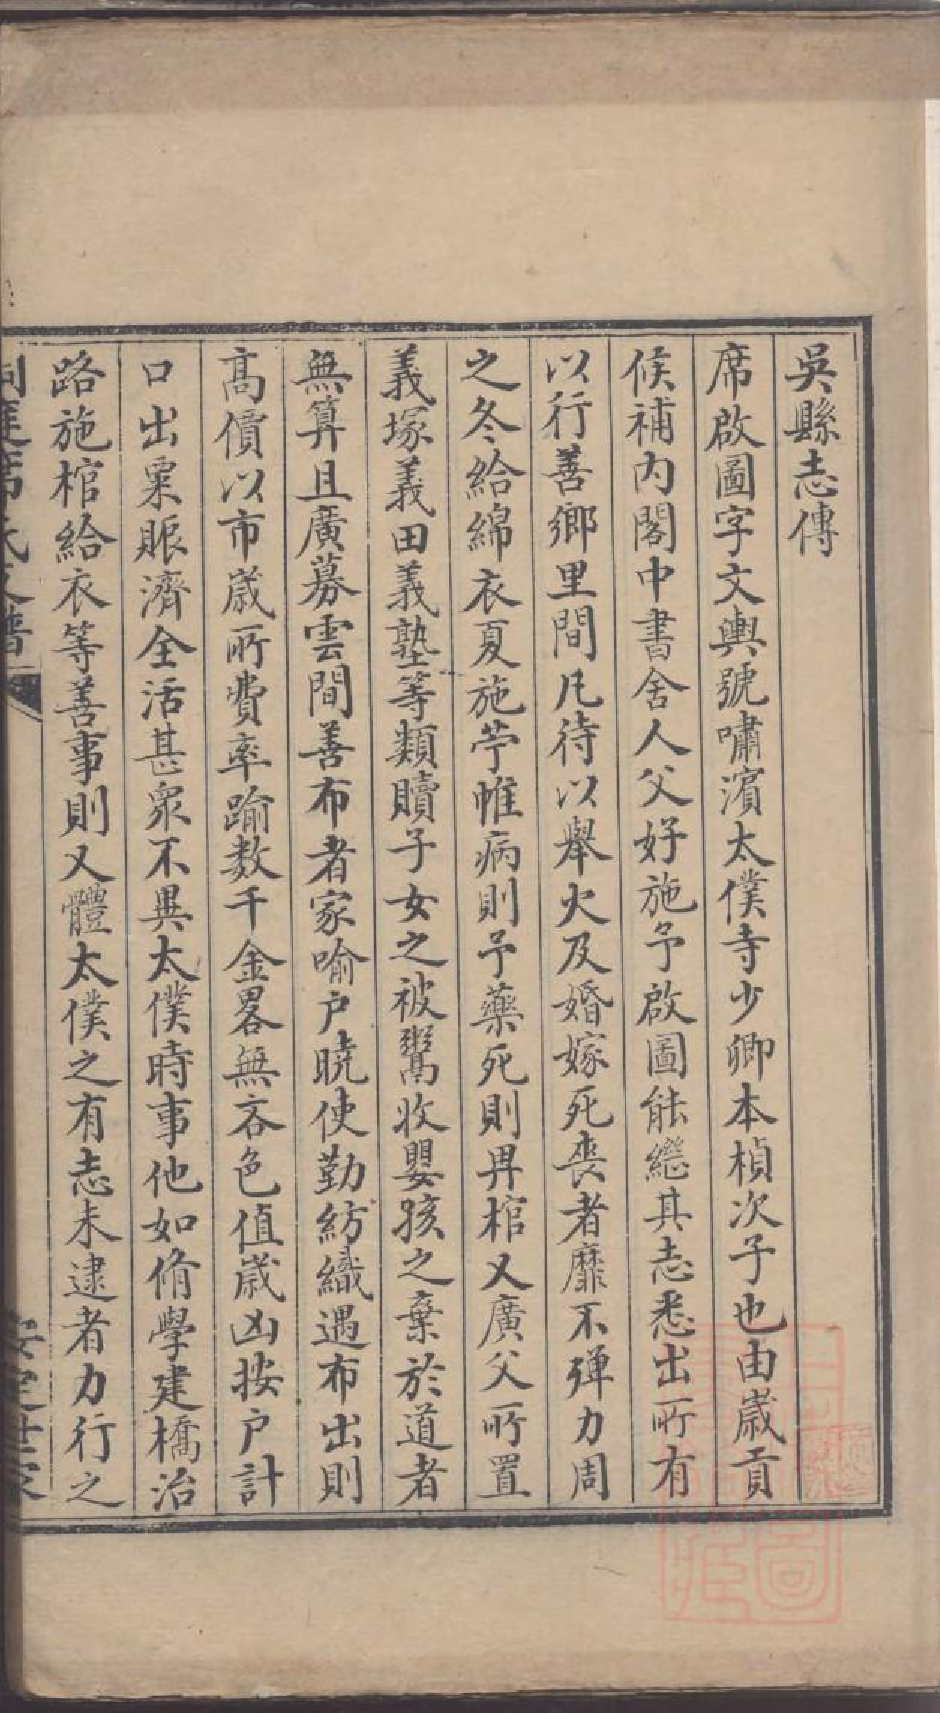 吳縣志傳
席啟圖字文輿號嘯濱太僕寺少卿本楨次子也由歲貢
候補內閣中書舍人父好施予啟圖能繼其志悉出所有
以行善鄉里間凡待以舉火及婚嫁死喪者靡不殫力周
之冬給綿衣夏施苧帷病則予藥死則畀棺又廣父所置
義塚義田義塾等類贖子女之被鬻收嬰孩之棄於道者
無算且廣募雲間善布者家喻戶曉使勤紡織遇布出則
高價以市歲所費率踰数千金畧無吝色值歲凶按戶計
口出粟賑濟全活甚衆不異太僕時事他如脩學建橋治
路施棺給衣等善事則又體太僕之有志未逮者力行之
洞庭席氏支譜
安定世家